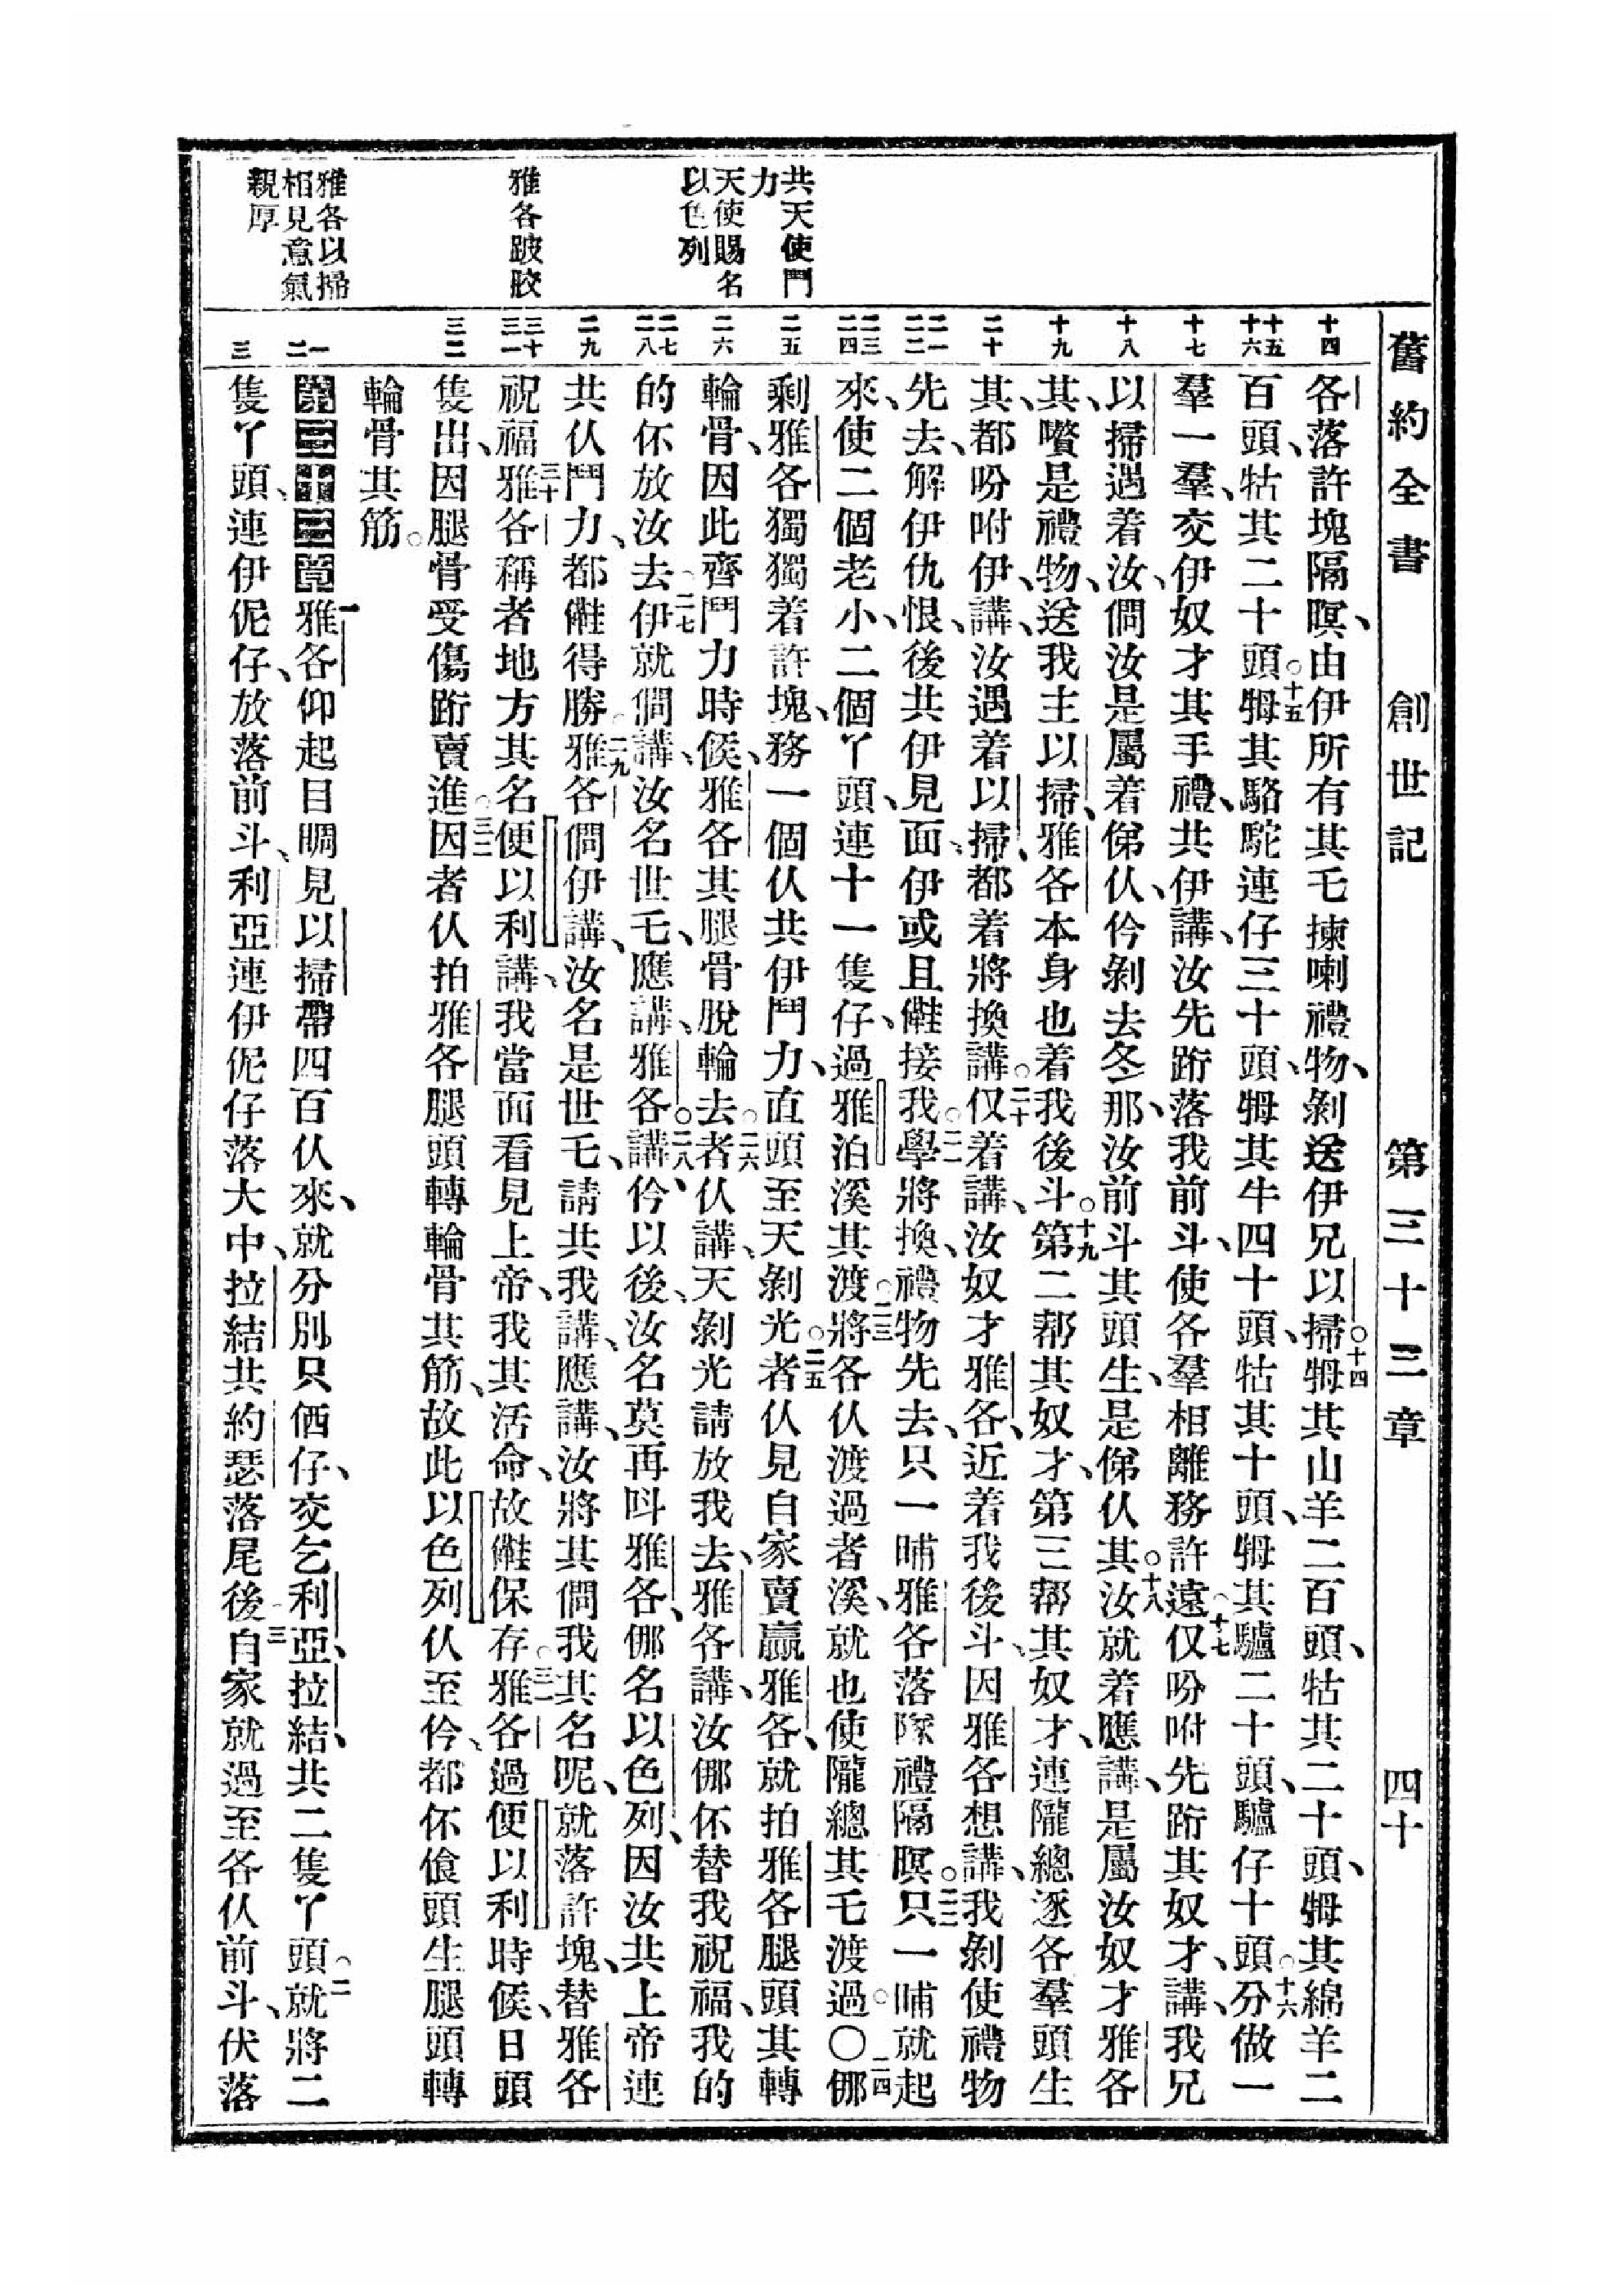 舊約全書 創世記 第三十三章 四十
共天使鬥
力
天使賜名
以色列
雅各跛骹
雅各以掃
相見意氣
親厚
十四
十五
十六
十七
十八
十九
二十
二一
二二
二三
二四
二五
二六
二七
二八
二九
三十
三一
三二
一
二
三
各落許塊隔暝、由伊所有其乇揀喇禮物、剝送伊兄以掃。十四㹀其山羊二百頭、牯其二十頭、㹀其綿羊二
百頭、牯其二十頭。十五㹀其駱駝連仔三十頭、㹀其牛四十頭、牯其十頭、㹀其驢二十頭、驢仔十頭。十六分做一
羣一羣、交伊奴才其手禮、共伊講、汝先跨落我前斗、使各羣相離務許遠。十七仅吩咐先跨其奴才、講、我兄
以掃遇着汝、僩汝是屬着俤仈、仱剝去冬那、汝前斗其頭生、是俤仈其。十八汝就着應講、是屬汝奴才雅各
其、嚽是禮物、送我主以掃、雅各本身也着我後斗。十九第二帮其奴才、第三帮其奴才、連隴總逐各羣頭生
其、都吩咐伊、講、汝遇着以掃、都着將換講。二十仅着講、汝奴才雅各、近着我後斗、因雅各想講、我剝使禮物
先去、解伊仇恨、後共伊見面、伊或且㒕接我。二一學將換、禮物先去、只一晡雅各落隊禮隔暝。二二只一晡就起
來、使二個老小、二個丫頭、連十一隻仔、過雅泊溪其渡。二三將各仈渡過者溪、就也使隴總其乇渡過。〇二四㑚
剩雅各獨獨着許塊、務一個仈共伊鬥力、直頭至天剝光。二五者仈見自家賣贏雅各、就拍雅各腿頭其轉
輪骨、因此齊鬥力時候、雅各其腿骨脫輪去。二六者仈講、天剝光請放我去、雅各講、汝㑚伓替我祝福、我的
的伓放汝去。二七伊就僩講、汝名世乇、應講、雅各。二八講、仱以後、汝名莫再呌雅各、㑚名以色列、因汝共上帝連
共仈鬥力、都㒕得勝。二九雅各僩伊講、汝名是世乇、請共我講、應講、汝將其僩我其名呢、就落許塊、替雅各
祝福、三十雅各稱者地方其名便以利、講、我當面看見上帝、我其活命、故㒕保存。三一雅各過便以利時候、日頭
隻出、因腿骨受傷跨賣進。三二因者仈拍雅各腿頭轉輪骨其筋、故此以色列仈至仱、都伓飠頭生腿頭轉
輪骨其筋。
第三十三章 一雅各仰起目睭見以掃帶四百仈來、就分別只㐁仔、交乞利亞、拉結、共二隻丫頭。二就將二
隻丫頭、連伊伲仔、放落前斗、利亞連伊伲仔落大中、拉結共約瑟落尾後。三自家就過至各仈前斗、伏落